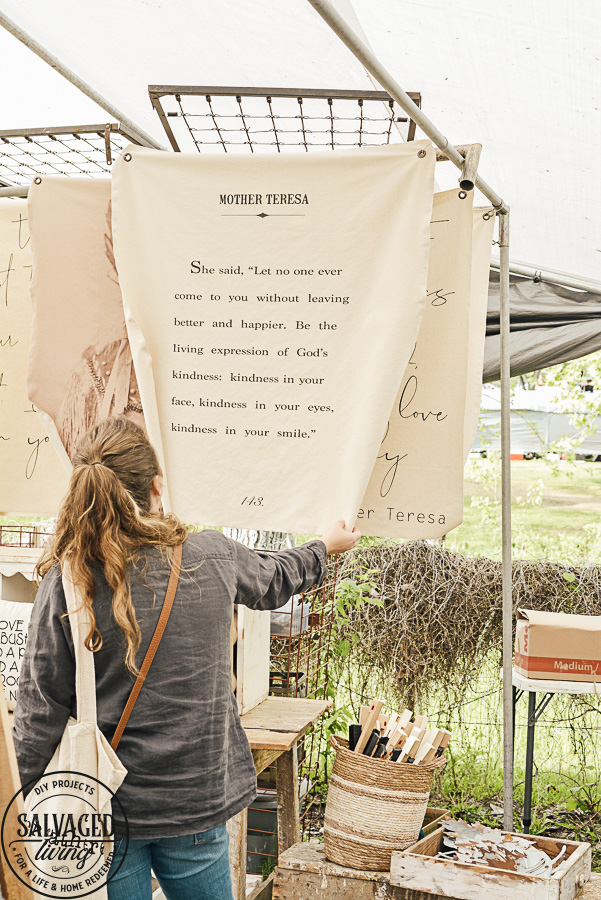 MOTHER TERESA
She said, “Let no one ever
come to you without leaving
better and happier. Be the
living expression of God’s
kindness: kindness in your
face, kindness in your eyes,
kindness in your smile.”
143.
love
y
er Teresa
Medium
DIY PROJECTS
SALVAGED
living
FOR A LIFE & HOME REDEEMED